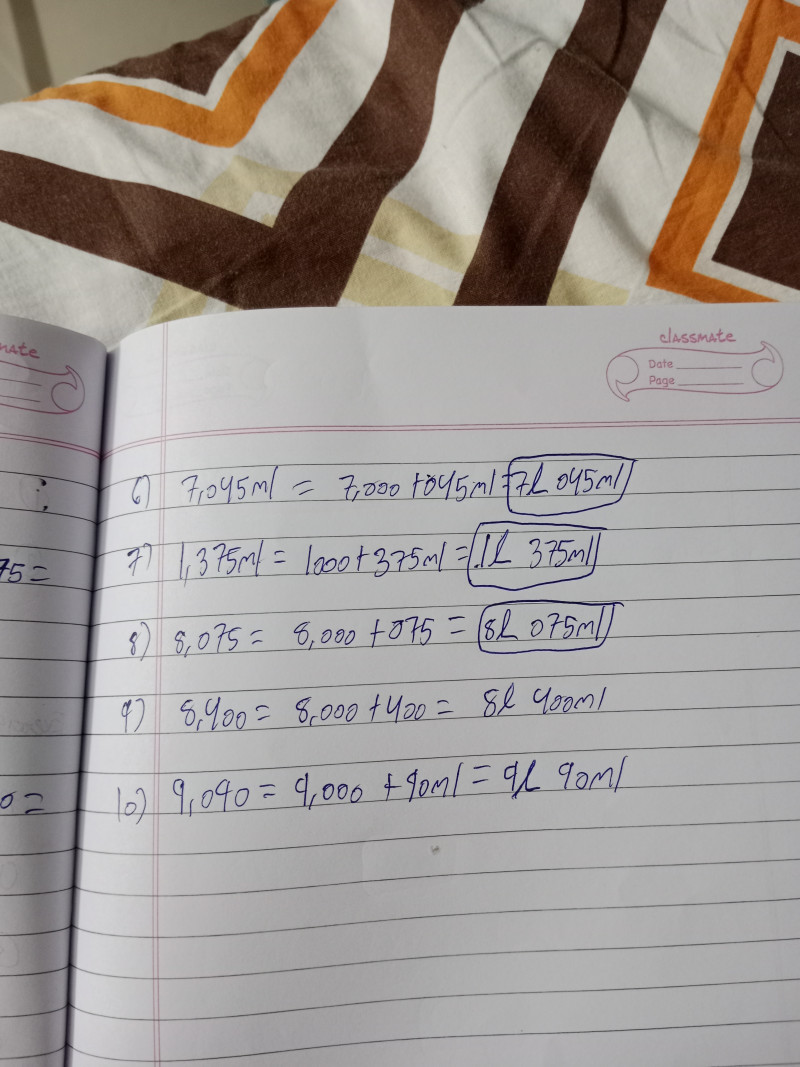 mate
classmate
Date
Page
6) 7,045ml = 7,000 + 045ml = 7l 045ml
75 =
7) 1,375ml = 1000 + 375ml = 1l 375ml
8) 8,075 = 8,000 + 075 = 8l 075ml
9) 8,400 = 8,000 + 400 = 8l 400ml
0 =
10) 9,090 = 9,000 + 90ml = 9l 90ml